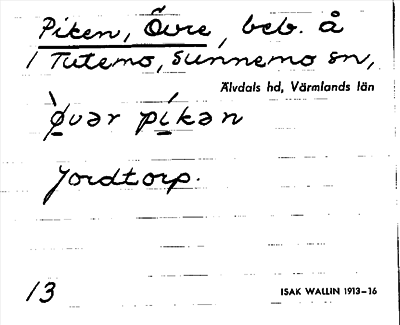 Piken, Övre, beb. å
/ Tutemo, Sunnemo sn,
Älvdals hd, Värmlands län
ø̀vər píkən
Jordtorp.
13
ISAK WALLIN 1913–16